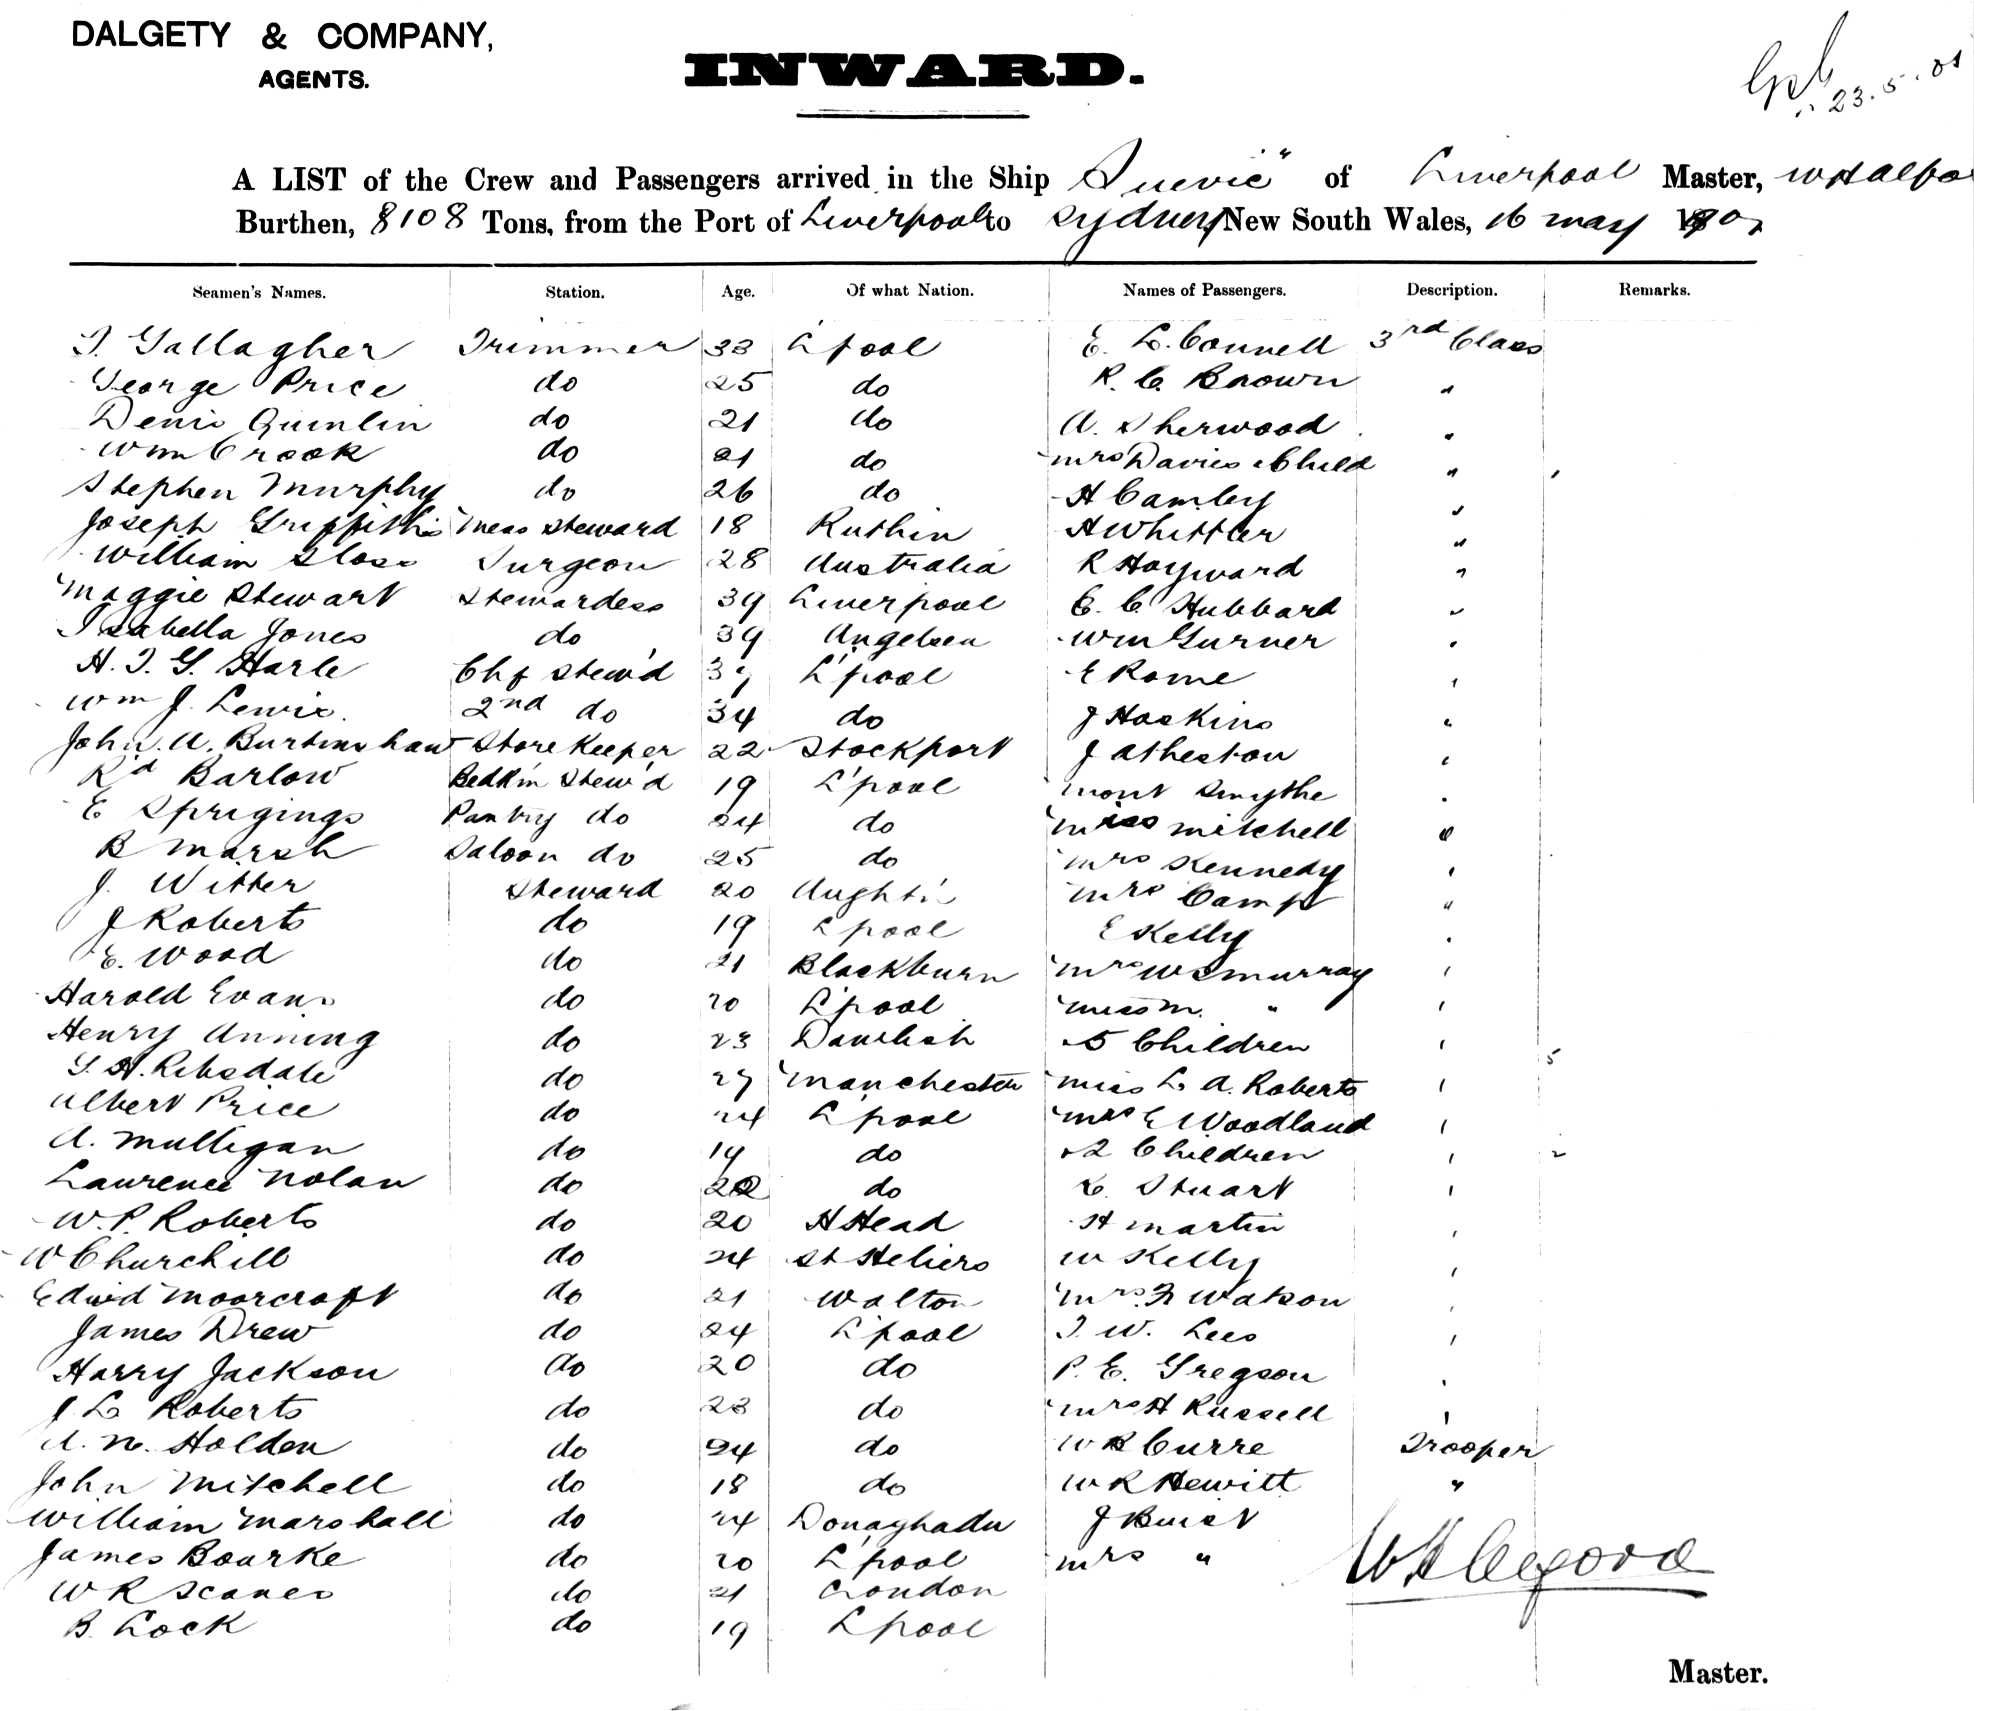 DALGETY & COMPANY,
AGENTS.
INWARD.
23.5.01
A LIST of the Crew and Passengers arrived in the Ship "Suevic" of Liverpool Master, W H
Burthen, 8108 Tons, from the Port of Liverpool to Sydney New South Wales, 16 May 1901
Seamen's Names. Station. Age. Of what Nation. Names of Passengers. Description. Remarks.
T. Gallagher Trimmer 33 L'pool E. L. Connell 3rd Class
George Price do 25 do R. C. Brown "
Denis Quinlin do 21 do A. Sherwood "
Wm Crook do 21 do Mrs Davies & Child "
Stephen Murphy do 26 do H Camley "
Joseph Griffiths Mess Steward 18 Ruthin A Whittler "
William Sloss Surgeon 28 Australia R Hayward "
Maggie Stewart Stewardess 39 Liverpool E. C. Hubbard "
Isabella Jones do 39 Angelsea Wm Turner "
H. T. G. Harle Chf Stew'd L'pool E Rome "
Wm J. Lewis. 2nd do 34 do J Hoskins "
John. A. Burtinshaw Store Keeper 22 Stockport J Atheston "
Rd Barlow Beddin Stew'd 19 L'pool Mont Smythe "
E Sprigings Pantry do 24 do Miss Mitchell "
B Marsh Saloon do 25 do Mrs Kennedy "
J. Witter Steward 20 Mrs Camp "
J Roberts do 19 L'pool E Kelly "
E. Wood do 21 Blackburn Mrs W S Murray "
Harold Evans do 20 L'pool Miss M. " "
Henry Anning do 23 Dawlish 5 Children " 5
G. H. Ribsdale do 27 Manchester Miss L. A. Roberts "
Albert Price do 24 L'pool Mrs E Woodland "
A. Mulligan do 19 do 2 Children " 2
Laurence Nolan do 22 do Stuart "
W. P. Roberts do 20 H Head H Martin "
W Churchill do 24 St Heliers W Kelly "
Edwd Moorcroft do 21 Walton Mrs. F Watson "
James Drew do 24 L'pool T. W. Lees "
Harry Jackson do 20 do P. E. Gregson "
J L Roberts do 23 do Mrs H Russell "
A. N. Holden do 24 do W R Curre Trooper
John Mitchell do 18 do W R Hewitt "
William Marshall do 24 Donaghadu J Buist
James Bourke do 20 L'pool Mrs "
W R Scanes do 21 London
B. Lock do 19 L'pool
Master.